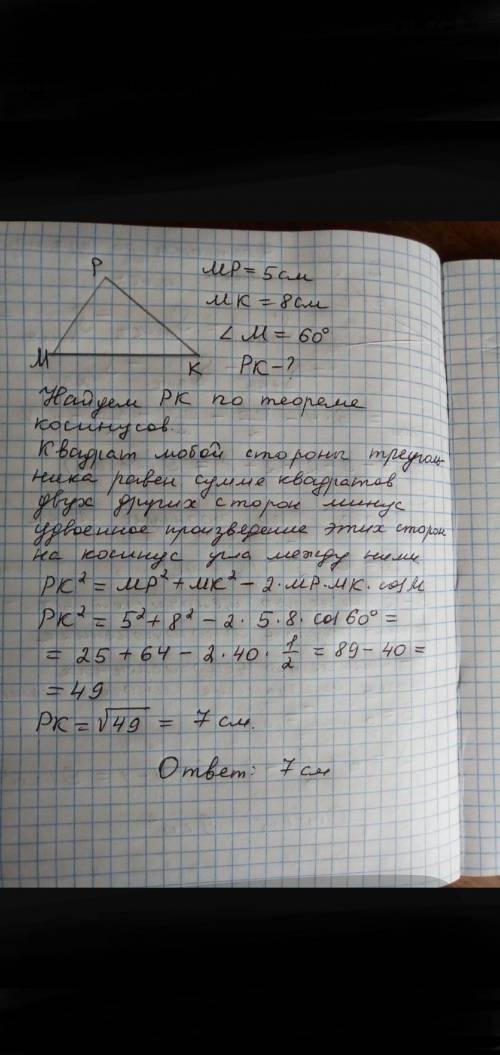 P
MP = 5 см
MK = 8 см
∠ M = 60°
M
K
PK - ?
Найдем PK по теореме
косинусов.
Квадрат любой стороны треуголь-
ника равен сумме квадратов
двух других сторон минус
удвоенное произведение этих сторон
на косинус угла между ними
PK² = MP² + MK² - 2 · MP · MK · cos M
PK² = 5² + 8² - 2 · 5 · 8 · cos 60° =
= 25 + 64 - 2 · 40 · 1/2 = 89 - 40 =
= 49
PK = √49 = 7 см.
Ответ: 7 см